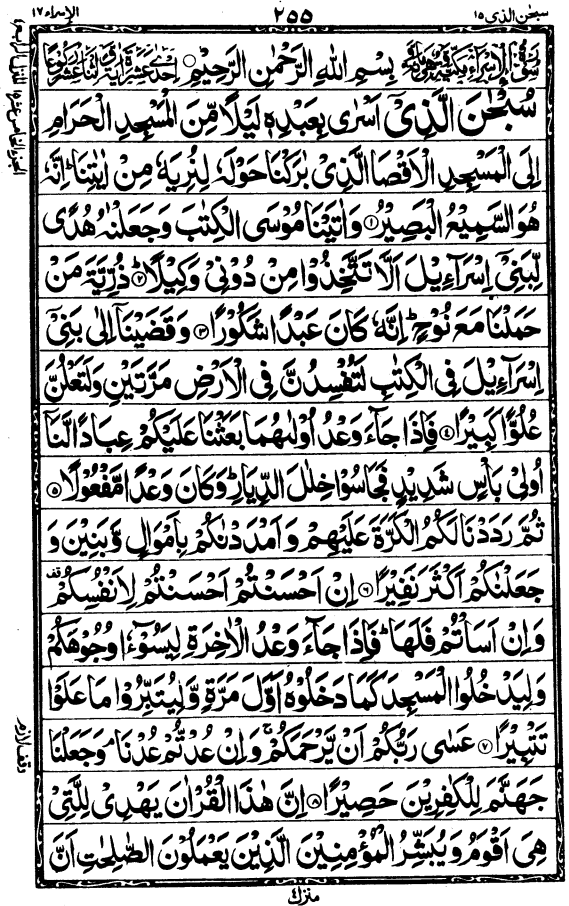 سبحٰن الذى ١٥
٢٥٥
الإسراء ١٧
بِسْمِ اللهِ الرَّحْمٰنِ الرَّحِيْمِ
سُبْحٰنَ الَّذِىْٓ اَسْرٰى بِعَبْدِهٖ لَيْلًا مِّنَ الْمَسْجِدِ الْحَرَامِ
اِلَى الْمَسْجِدِ الْاَقْصَا الَّذِىْ بٰرَكْنَا حَوْلَهٗ لِنُرِيَهٗ مِنْ اٰيٰتِنَا ؕ اِنَّهٗ
هُوَ السَّمِيْعُ الْبَصِيْرُ ۝١ وَاٰتَيْنَا مُوْسَى الْكِتٰبَ وَجَعَلْنٰهُ هُدًى
لِّبَنِىْٓ اِسْرَآءِيْلَ اَلَّا تَتَّخِذُوْا مِنْ دُوْنِىْ وَكِيْلًا ؕ ۝٢ ذُرِّيَّةَ مَنْ
حَمَلْنَا مَعَ نُوْحٍ ؕ اِنَّهٗ كَانَ عَبْدًا شَكُوْرًا ۝٣ وَقَضَيْنَآ اِلٰى بَنِىْٓ
اِسْرَآءِيْلَ فِى الْكِتٰبِ لَتُفْسِدُنَّ فِى الْاَرْضِ مَرَّتَيْنِ وَلَتَعْلُنَّ
عُلُوًّا كَبِيْرًا ۝٤ فَاِذَا جَآءَ وَعْدُ اُوْلٰىهُمَا بَعَثْنَا عَلَيْكُمْ عِبَادًا لَّنَآ
اُولِىْ بَاْسٍ شَدِيْدٍ فَجَاسُوْا خِلٰلَ الدِّيَارِ ؕ وَكَانَ وَعْدًا مَّفْعُوْلًا ۝٥
ثُمَّ رَدَدْنَا لَكُمُ الْكَرَّةَ عَلَيْهِمْ وَاَمْدَدْنٰكُمْ بِاَمْوَالٍ وَّبَنِيْنَ وَ
جَعَلْنٰكُمْ اَكْثَرَ نَفِيْرًا ۝٦ اِنْ اَحْسَنْتُمْ اَحْسَنْتُمْ لِاَنْفُسِكُمْ
وَاِنْ اَسَاْتُمْ فَلَهَا ؕ فَاِذَا جَآءَ وَعْدُ الْاٰخِرَةِ لِيَسُوْٓءٗا وُجُوْهَكُمْ
وَلِيَدْخُلُوا الْمَسْجِدَ كَمَا دَخَلُوْهُ اَوَّلَ مَرَّةٍ وَّلِيُتَبِّرُوْا مَا عَلَوْا
تَتْبِيْرًا ۝٧ عَسٰى رَبُّكُمْ اَنْ يَّرْحَمَكُمْ ۚ وَاِنْ عُدْتُّمْ عُدْنَا ۘ وَجَعَلْنَا
جَهَنَّمَ لِلْكٰفِرِيْنَ حَصِيْرًا ۝٨ اِنَّ هٰذَا الْقُرْاٰنَ يَهْدِىْ لِلَّتِىْ
هِىَ اَقْوَمُ وَيُبَشِّرُ الْمُؤْمِنِيْنَ الَّذِيْنَ يَعْمَلُوْنَ الصّٰلِحٰتِ اَنَّ
منزل ٤